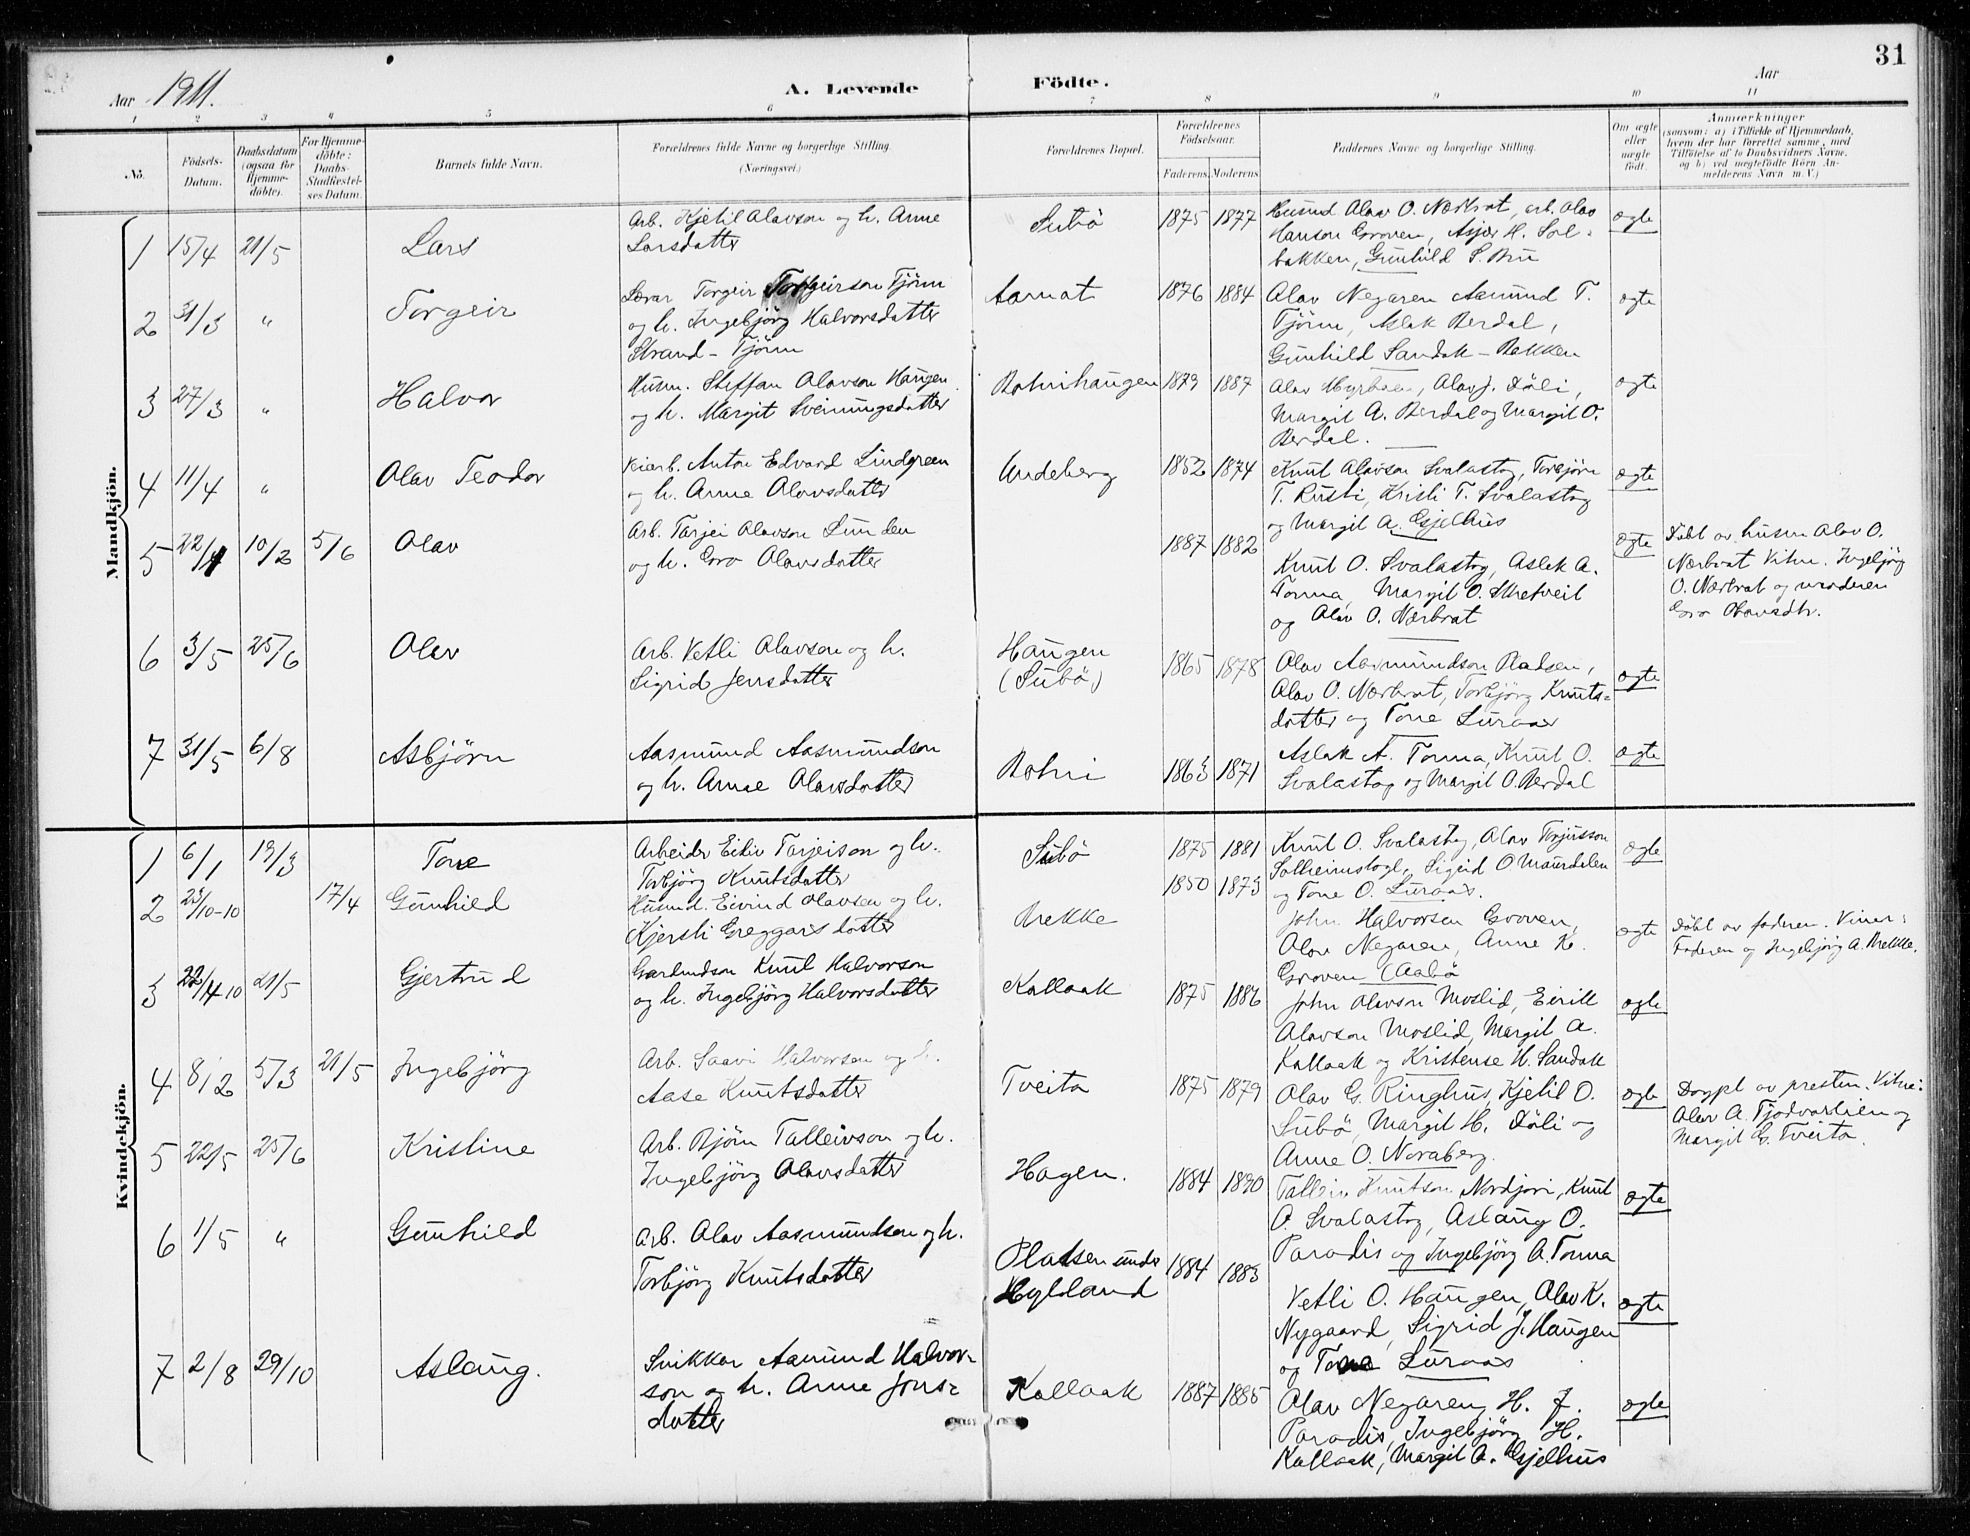 31
Aar 1911.
A. Levende Födte.
Aar
1 2 3 4 5 6 7 8 9 10 11
No.
Födsels-Datum.
Daabsdatum (ogsaa for Hjemmedöbte).
For Hjemmedöbte: Daabs-Stadfæstelses Datum.
Barnets fulde Navn.
Forældrenes fulde Navne og borgerlige Stilling.
(Næringsvei.)
Forældrenes Bopæl.
Forældrenes Födselsaar.
Faderens. Moderens.
Faddernes Navne og borgerlige Stilling.
Om ægte eller uægte födt.
Anmærkninger
(saasom: a) i Tilfælde af Hjemmedaab, hvem der har forrettet samme, med Tilföielse af to Daabsvidners Navne, og b) ved uægtefödte Börn Anmelderens Navn m. V.)
Mandkjön.
1 15/4 21/5 Lars
Arb. Kjetil Olavson og h. Anne
Larsdatter
Subö 1875 1877
Husmd Olav O. Nærbrat, arb. Olav
Hanson Groven, Asjer H. Sol-
bakken, Gunhild S. Bru
ægte
2 31/3 " Torgeir
Lærar Torgeir Torgeirson Tjönn
og h. Ingebjörg Halvorsdatter
Strand - Tjönn
Aamat 1876 1884
Olav Negaren Aamund T.
Tjönn, Aslak Berdal,
Gunhild Sandok - Bekken
ægte
3 27/3 " Halvor
Husm. Steffan Olavson Haugen
og h. Margit Sveinungsdatter
Botnihaugen 1879 1887
Olav Myrboen, Olav J. Döli,
Margit A. Berdal og Margit O.
Berdal.
ægte
4 11/4 " Olav Teodor
Veiarb. Anton Edvard Lindgreen
og h. Anne Olavsdatter
Undeberg 1852 1874
Knut Olavson Svalastog, Torbjörn
T. Rusti, Kristi T. Svalastog
og Margit A. Gjelhus
ægte
5 22/1 10/2 5/6 Olav
Arb. Tarjei Olavson Lunden
og h. Gro Olavsdatter
1887 1882
Knut O. Svalastog, Aslak A.
Tonna, Margit O. Skretveit
og Olav O. Nærbrat
ægte
Döbt av husm Olav O.
Nærbrat Vitne. Ingebjörg
O. Nærbrat og moderen
Gro Olavsdtr.
6 3/5 25/6 Olav
Arb. Vetli Olavson og h.
Sigrid Jensdatter
Haugen
(Subö)
1865 1878
Olav Aasmundson Pladsen,
Olav O. Nærbrat, Torbjörg Knuts-
datter og Tone Luraas
ægte
7 31/5 6/8 Asbjörn
Aasmund Aasmundson
og h. Anne Olavsdatter
Botni 1863 1871
Aslak A. Tonna, Knut O.
Svalastog og Margit O. Berdal
ægte
Kvindekjön.
1 6/1 19/3 Tone
Arbeider Eikiv Tarjeison og h.
Torbjörg Knutsdatter
Subö 1875 1881
Knut O. Svalastog, Olav Torjusson
Solheimstogl, Sigrid O Maurdalen
og Tone O. Luraas.
ægte
2 23/10-10 17/4 Gunhild
Husmd. Eivind Olavsen og h.
Kjersti Greggarsdatter
Brekke 1850 1873
John Halvorsen Groven,
Olav Negaren, Anne K.
Groven (Aabö
ægte
Döbt av faderen. Vitner:
Faderen og Ingebjörg A. Brekke.
3 22/4-10 21/5 Gjertrud
Gardmdson Knut Halvorson
og h. Ingebjörg Halvorsdatter
Kallaak 1875 1886
John Olavson Moslid, Eirik
Olavson Moslid, Margit A.
Kallaak og Kristense H. Sandok
ægte
4 8/2 5/3 21/5 Ingebjörg
Arb. Saavi Halvorsen og h.
Aase Knutsdatter
Tveita 1875 1879
Olav G. Ringhus, Kjetil O.
Subö, Margit H. Döli og
Anne O. Noraberg.
ægte
Döypt av presten. Vitne:
Olav A. Tjodvarlien og
Margit G. Tveita.
5 22/5 25/6 Kristine
Arb. Björn Talleivson og h.
Ingebjörg Olavsdatter
Hagen. 1884 1890
Talleiv Knutson Nordjori, Knut
O. Svalastog, Aslaug O.
Paradis og Ingebjörg A. Tonna
ægte
6 1/5 " Gunhild
Arb. Olav Aasmundson og h.
Torbjörg Knutsdatter
Pladsen under
Hylland
1884 1883
Vetli O. Haugen, Olav K.
Nygaard, Sigrid J. Haugen
og Tone Luraas
ægte
7 2/8 29/10 Aslaug.
Snikkar Aamund Halvor-
son og h. Anne Jons-
datter
Kallaak 1887 1885
Olav Negaren, H. J.
Paradis, Ingebjörg H.
Kallaak, Margit A. Gjelhus
ægte